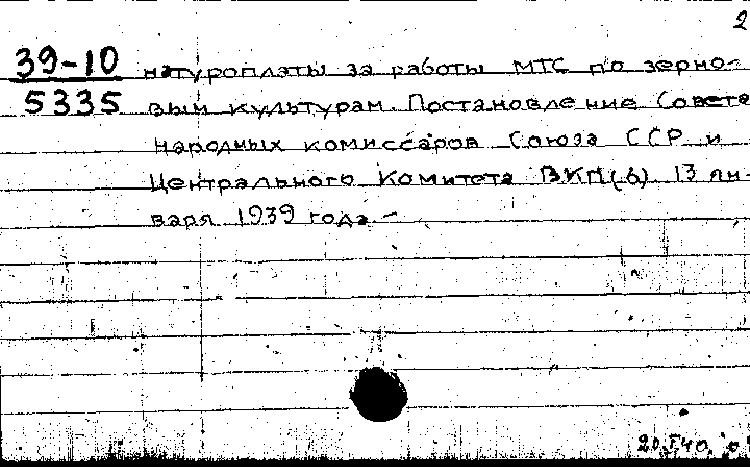 2
39-10 натуроплаты за работы МТС по зерно-
5335 вым культурам. Постановление Совета
Народных комиссаров Союза ССР и
Центрального Комитета ВКП(б) 13 ян-
варя 1939 года.-